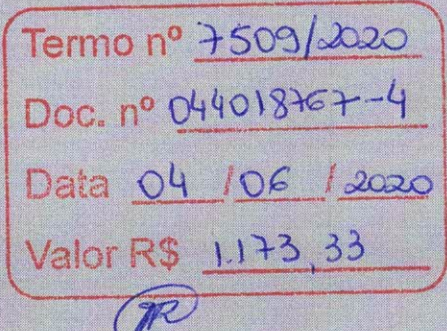 Termo nº 7509/2020
Doc. nº 044018767-4
Data 04 / 06 / 2020
Valor R$ 1.173,33